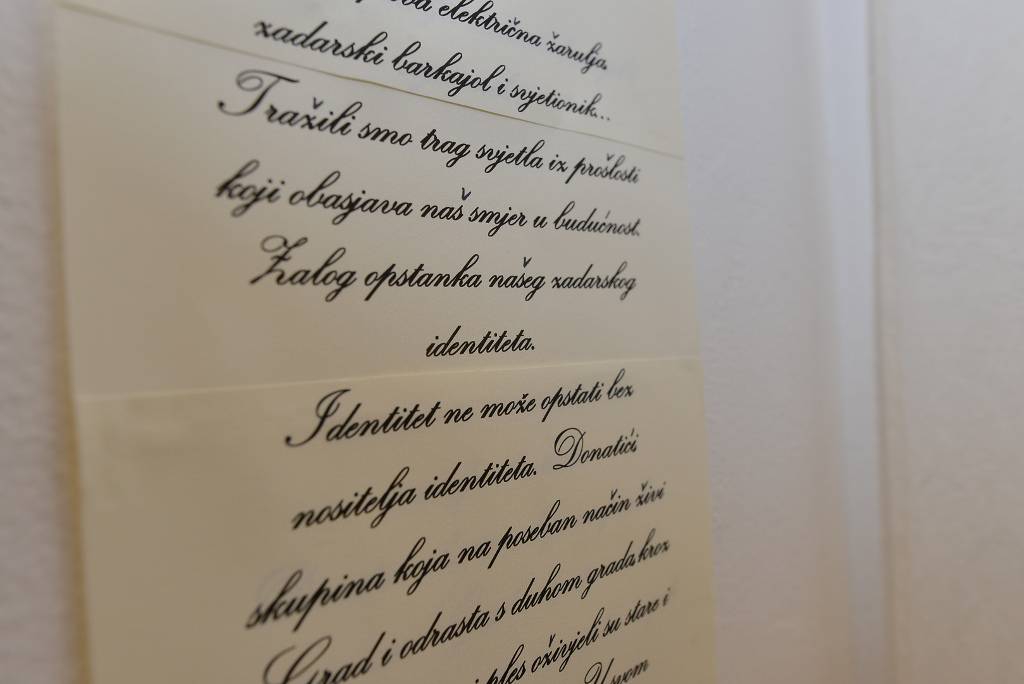 električna žarulja,
zadarski barkajol i svjetionik...
Tražili smo trag svjetla iz prošlosti
koji obasjava naš smjer u budućnost.
Zalog opstanka našeg zadarskog
identiteta.
Identitet ne može opstati bez
nositelja identiteta. Donatići
skupina koja na poseban način živi
Grad i odrasta s duhom grada, kroz
ples oživjeli su stare i